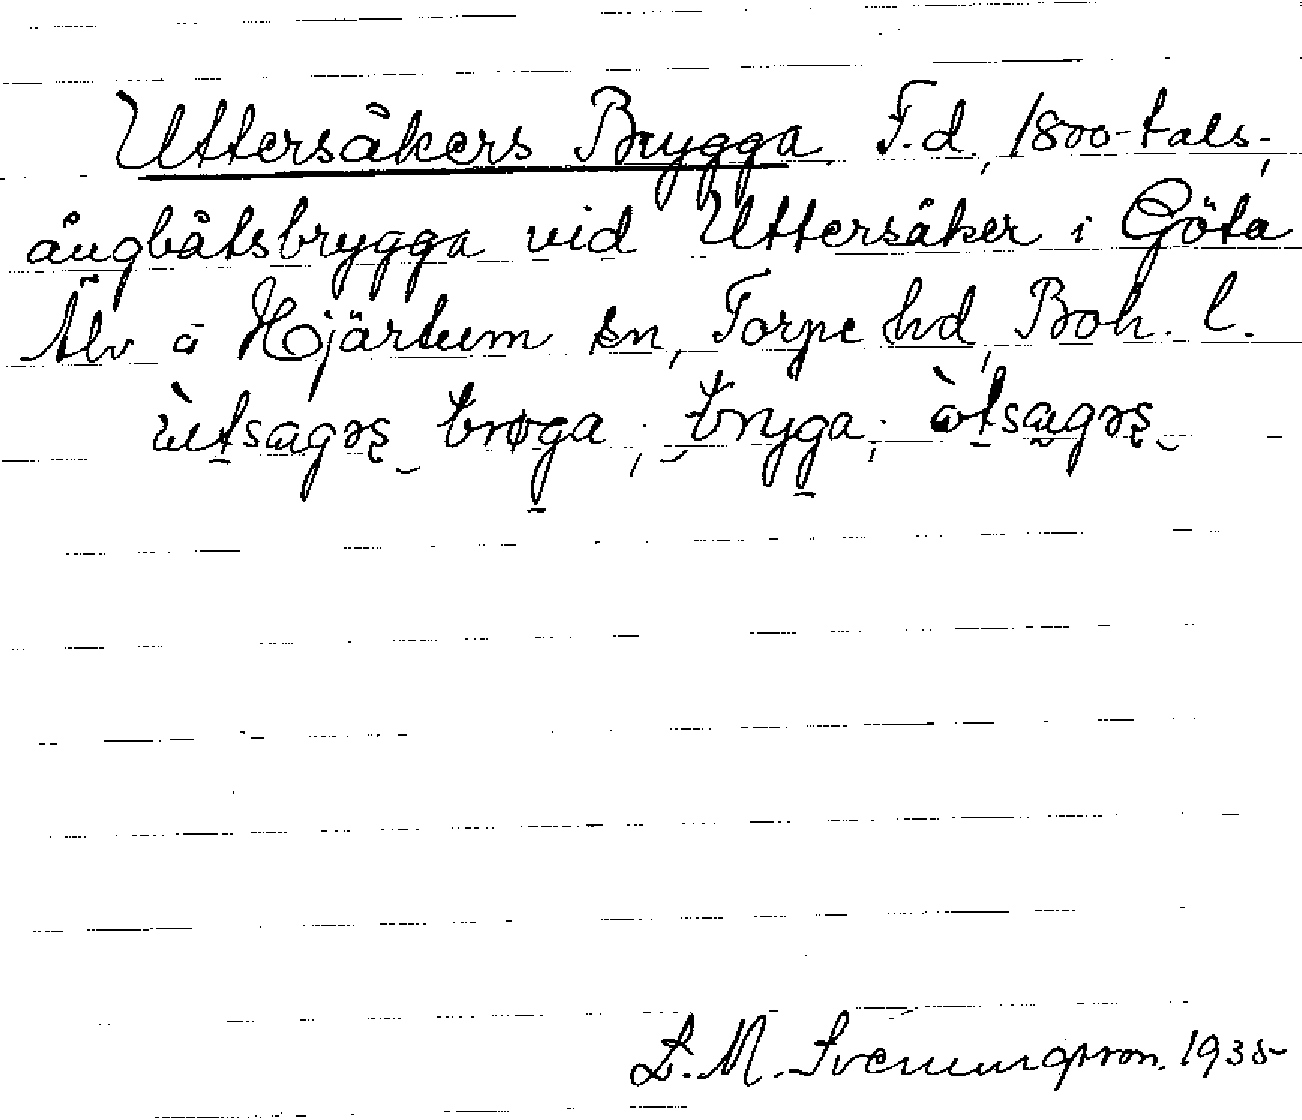 Uttersäkers Brygga. F.d., 1800-tals-,
ångbåtsbrygga vid Uttersäker i Göta
Älv i Hjärtum sn, Torpe hd, Boh. l.
ùtsagəs brøga; bryga; òtsagəs
L. M. Svenungsson. 1935